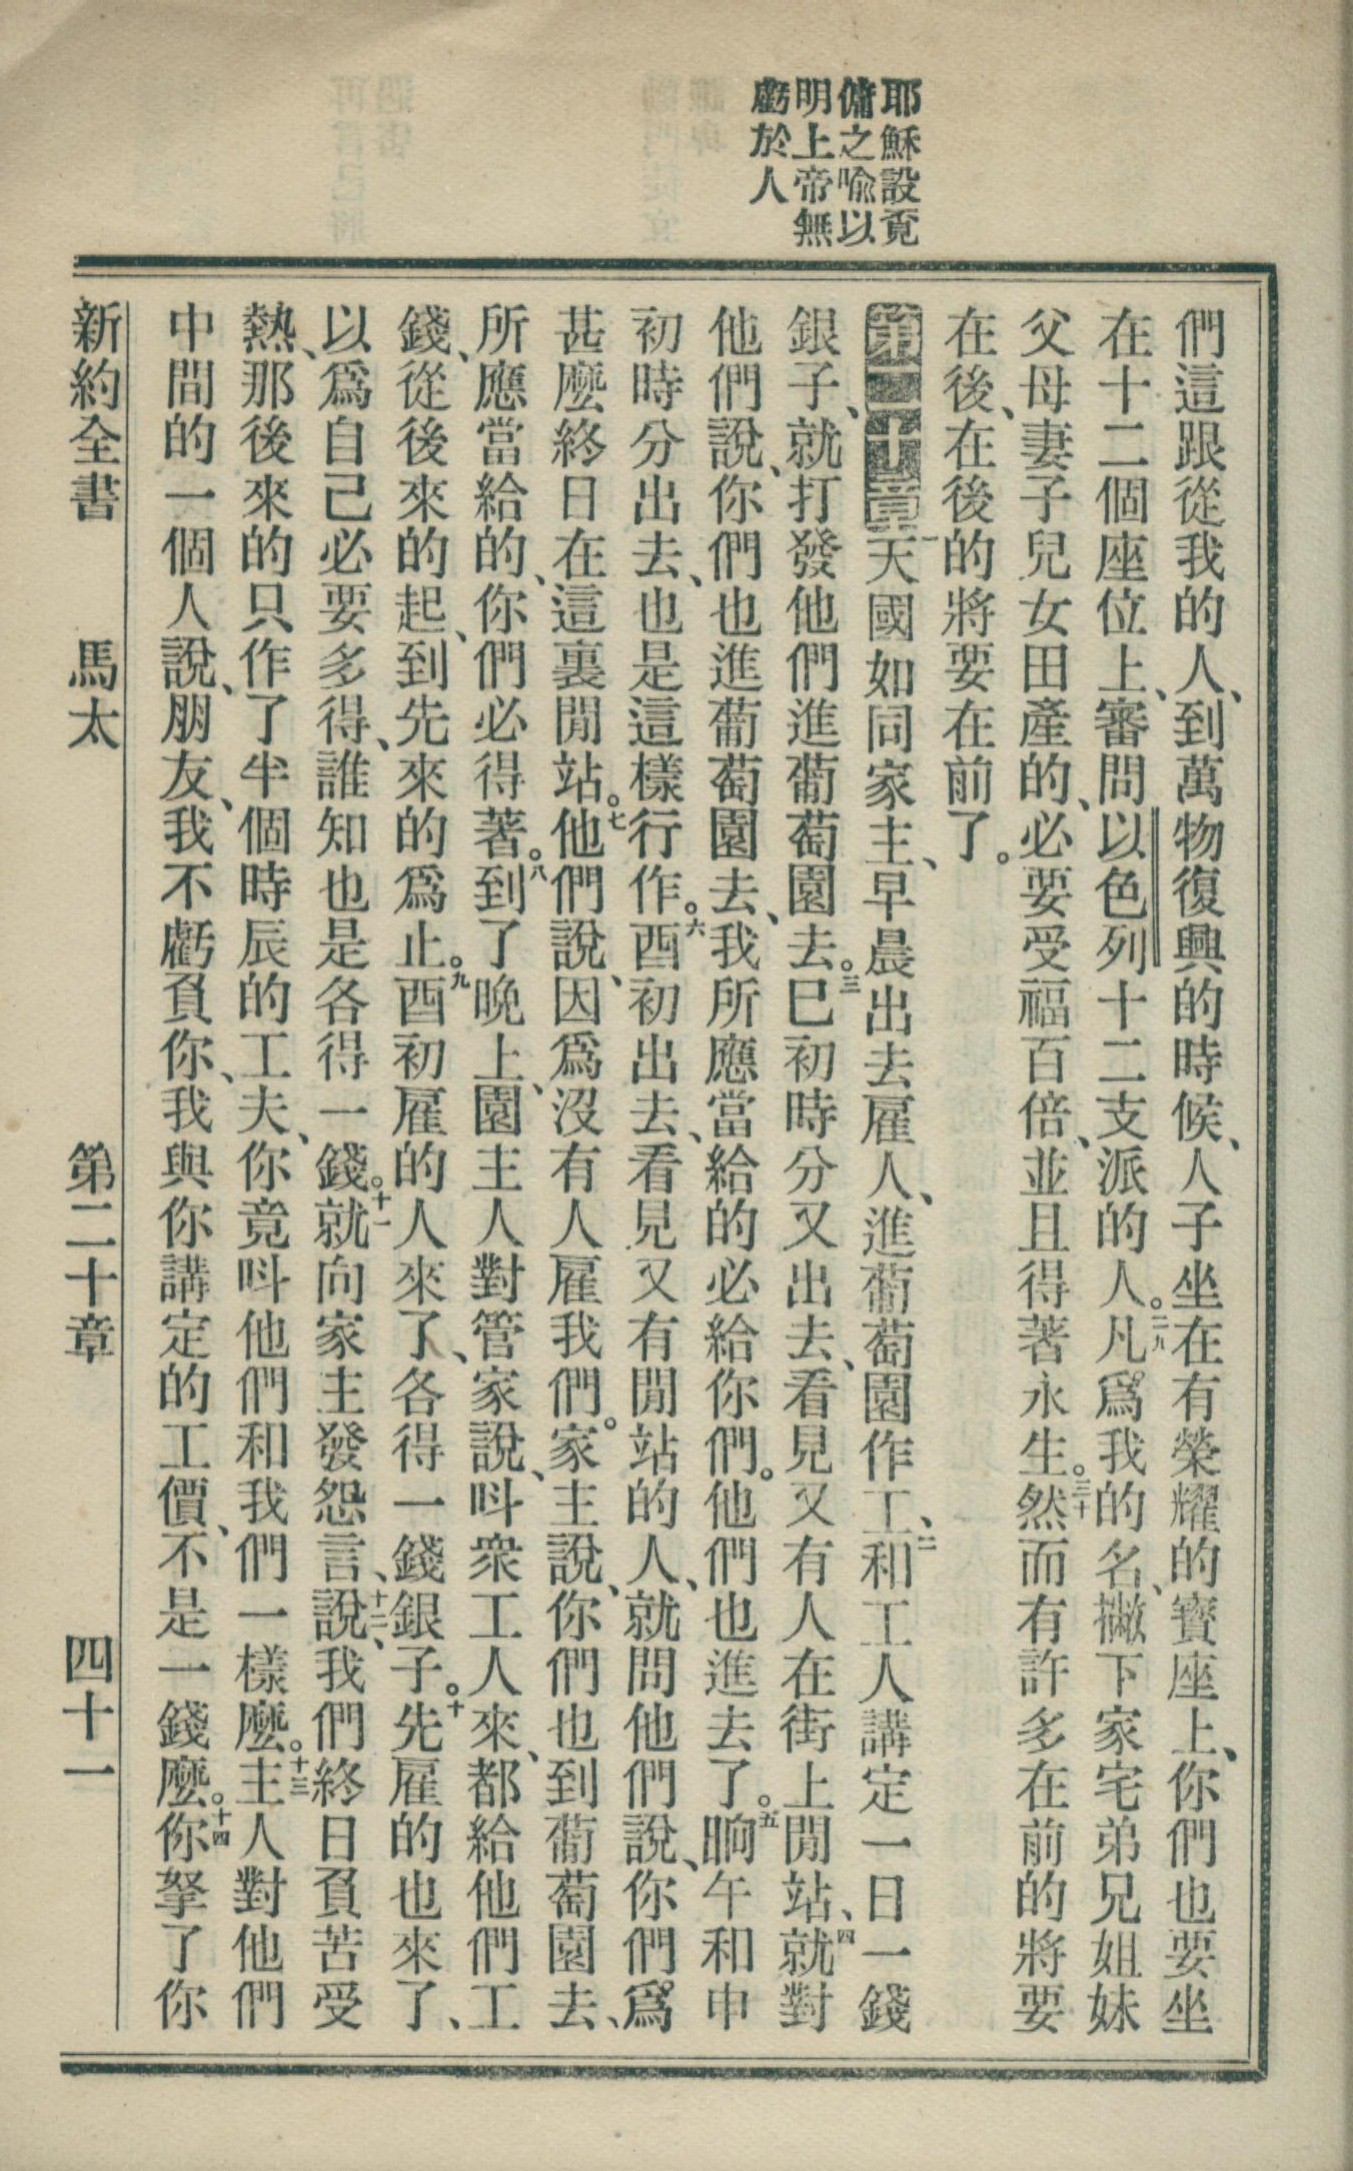 耶穌設覔
傭之喩以
明上帝無
虧於人
們這跟從我的人、到萬物復興的時候、人子坐在有榮耀的寳座上、你們也要坐
在十二個座位上、審問以色列十二支派的人。二九凡爲我的名、撇下家宅弟兄姐妹
父母妻子兒女田產的、必要受福百倍、並且得著永生。三十然而有許多在前的將要
在後、在後的將要在前了。
第二十章一天國如同家主、早晨出去雇人、進葡萄園作工、二和工人講定一日一錢
銀子、就打發他們進葡萄園去。三巳初時分又出去、看見又有人在街上閒站、四就對
他們說、你們也進葡萄園去、我所應當給的必給你們。他們也進去了。五晌午和申
初時分出去、也是這樣行作。六酉初出去、看見又有閒站的人、就問他們說、你們爲
甚麽終日在這裏閒站。七他們說、因爲沒有人雇我們。家主說、你們也到葡萄園去、
所應當給的、你們必得著。八到了晚上、園主人對管家說、呌衆工人來、都給他們工
錢、從後來的起、到先來的爲止。九酉初雇的人來了、各得一錢銀子。十先雇的也來了、
以爲自己必要多得、誰知也是各得一錢。十一就向家主發怨言、十二說、我們終日負苦受
熱、那後來的只作了半個時辰的工夫、你竟呌他們和我們一樣麽。十三主人對他們
中間的一個人說、朋友、我不虧負你、我與你講定的工價、不是一錢麽。十四你拏了你
新約全書　馬太　第二十章　四十一